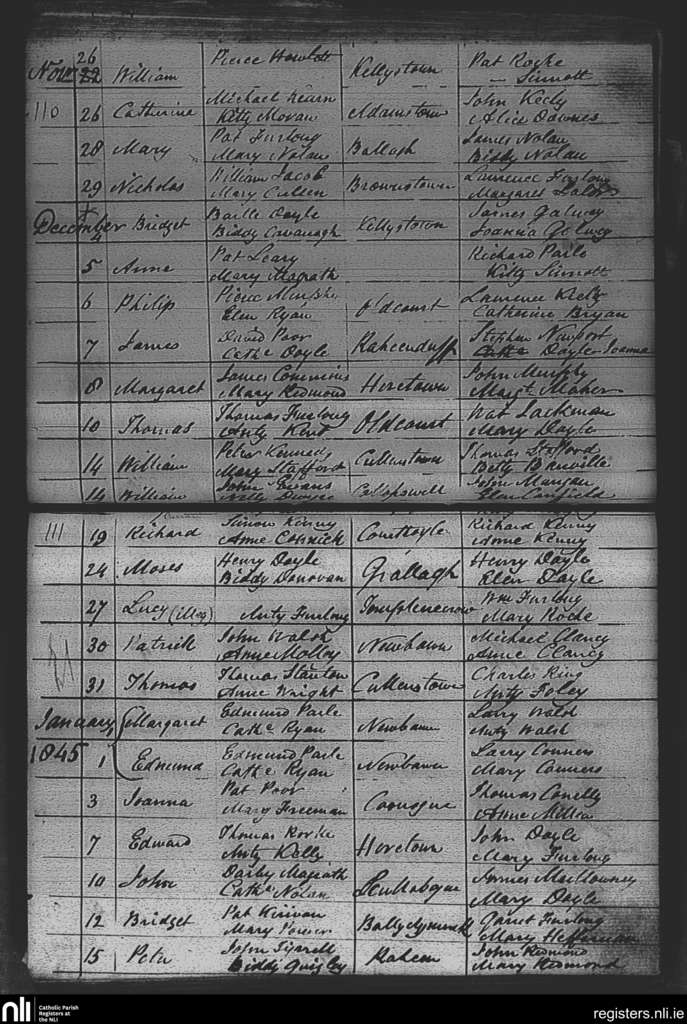 26
Novr 22 William Pierce Howlett Kellystown Pat Roche
— Sinnott
110 26 Catherine Michael Kearn Adamstown John Keely
Kitty Moran Alice Downes
28 Mary Pat Furlong Ballagh James Nolan
Mary Nolan Biddy Nolan
29 Nicholas William Jacob Brownstown Laurence Furlong
Mary Cullen Margaret Lalor
December 4 Bridget Bartle Doyle Kellystown James Galwey
Biddy Cavanagh Joanna Galwey
5 Anne Pat Leary Richard Parle
Mary Magrath Kitty Sinnott
6 Philip Pierce Murphy Oldcourt Laurence Keely
Elen Ryan Catherine Bryan
7 James David Poor Raheenduff Stephen Newport
Cathe Doyle Cathe Doyle Joanna
8 Margaret James Commins Horetown John Murphy
Mary Redmond Margt Maher
10 Thomas Thomas Furlong Oldcourt Wat Lackman
Anty Kent Mary Doyle
14 William Peter Kennedy Cullenstown Thomas Stafford
Mary Stafford Betty Banville
14 William John Evans John Mangan
Nelly Dwyer Elen Canfield
111 19 Richard Simon Kenny Courthoyle Richard Kenny
Anne Cornick Anne Kenny
24 Moses Henry Doyle Grallagh Henry Doyle
Biddy Donovan Elen Doyle
27 Lucy (illeg) Anty Furlong Templenecrow Wm Furlong
Mary Roche
30 Patrick John Walsh Newbawn Michael Clancy
Anne Molloy Anne Clancy
31 Thomas Thomas Stanton Cullenstown Charles King
Anne Wright Anty Foley
January Margaret Edmund Parle Newbawn Larry Walsh
Cathe Ryan Anty Walsh
1845 1 Edmund Edmund Parle Newbawn Larry Conners
Cathe Ryan Mary Conners
3 Joanna Pat Poor Coonogue Thomas Conelly
Mary Freeman Anne Milton
7 Edward Thomas Roche Horetown John Doyle
Anty Kelly Mary Furlong
10 John Darby Magrath James
Cathe Nolan Mary Doyle
12 Bridget Pat Kirivan Garret Furlong
Mary Power Mary Heffernan
15 Peter John Tyrrell Raheen John Redmond
Biddy Quigley Mary Redmond
nli Catholic Parish
Registers at
the NLI
registers.nli.ie